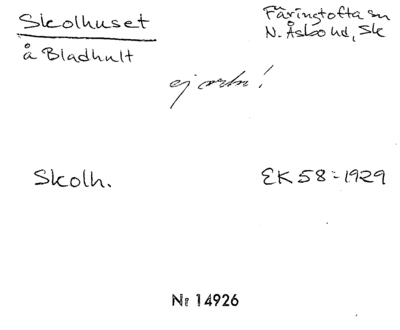 Skolhuset
å Bladhult
Färingtofta sn
N. Åsbo hd, Sk
ej ortn!
Skolh.
EK 58 - 1929
Nr 14926